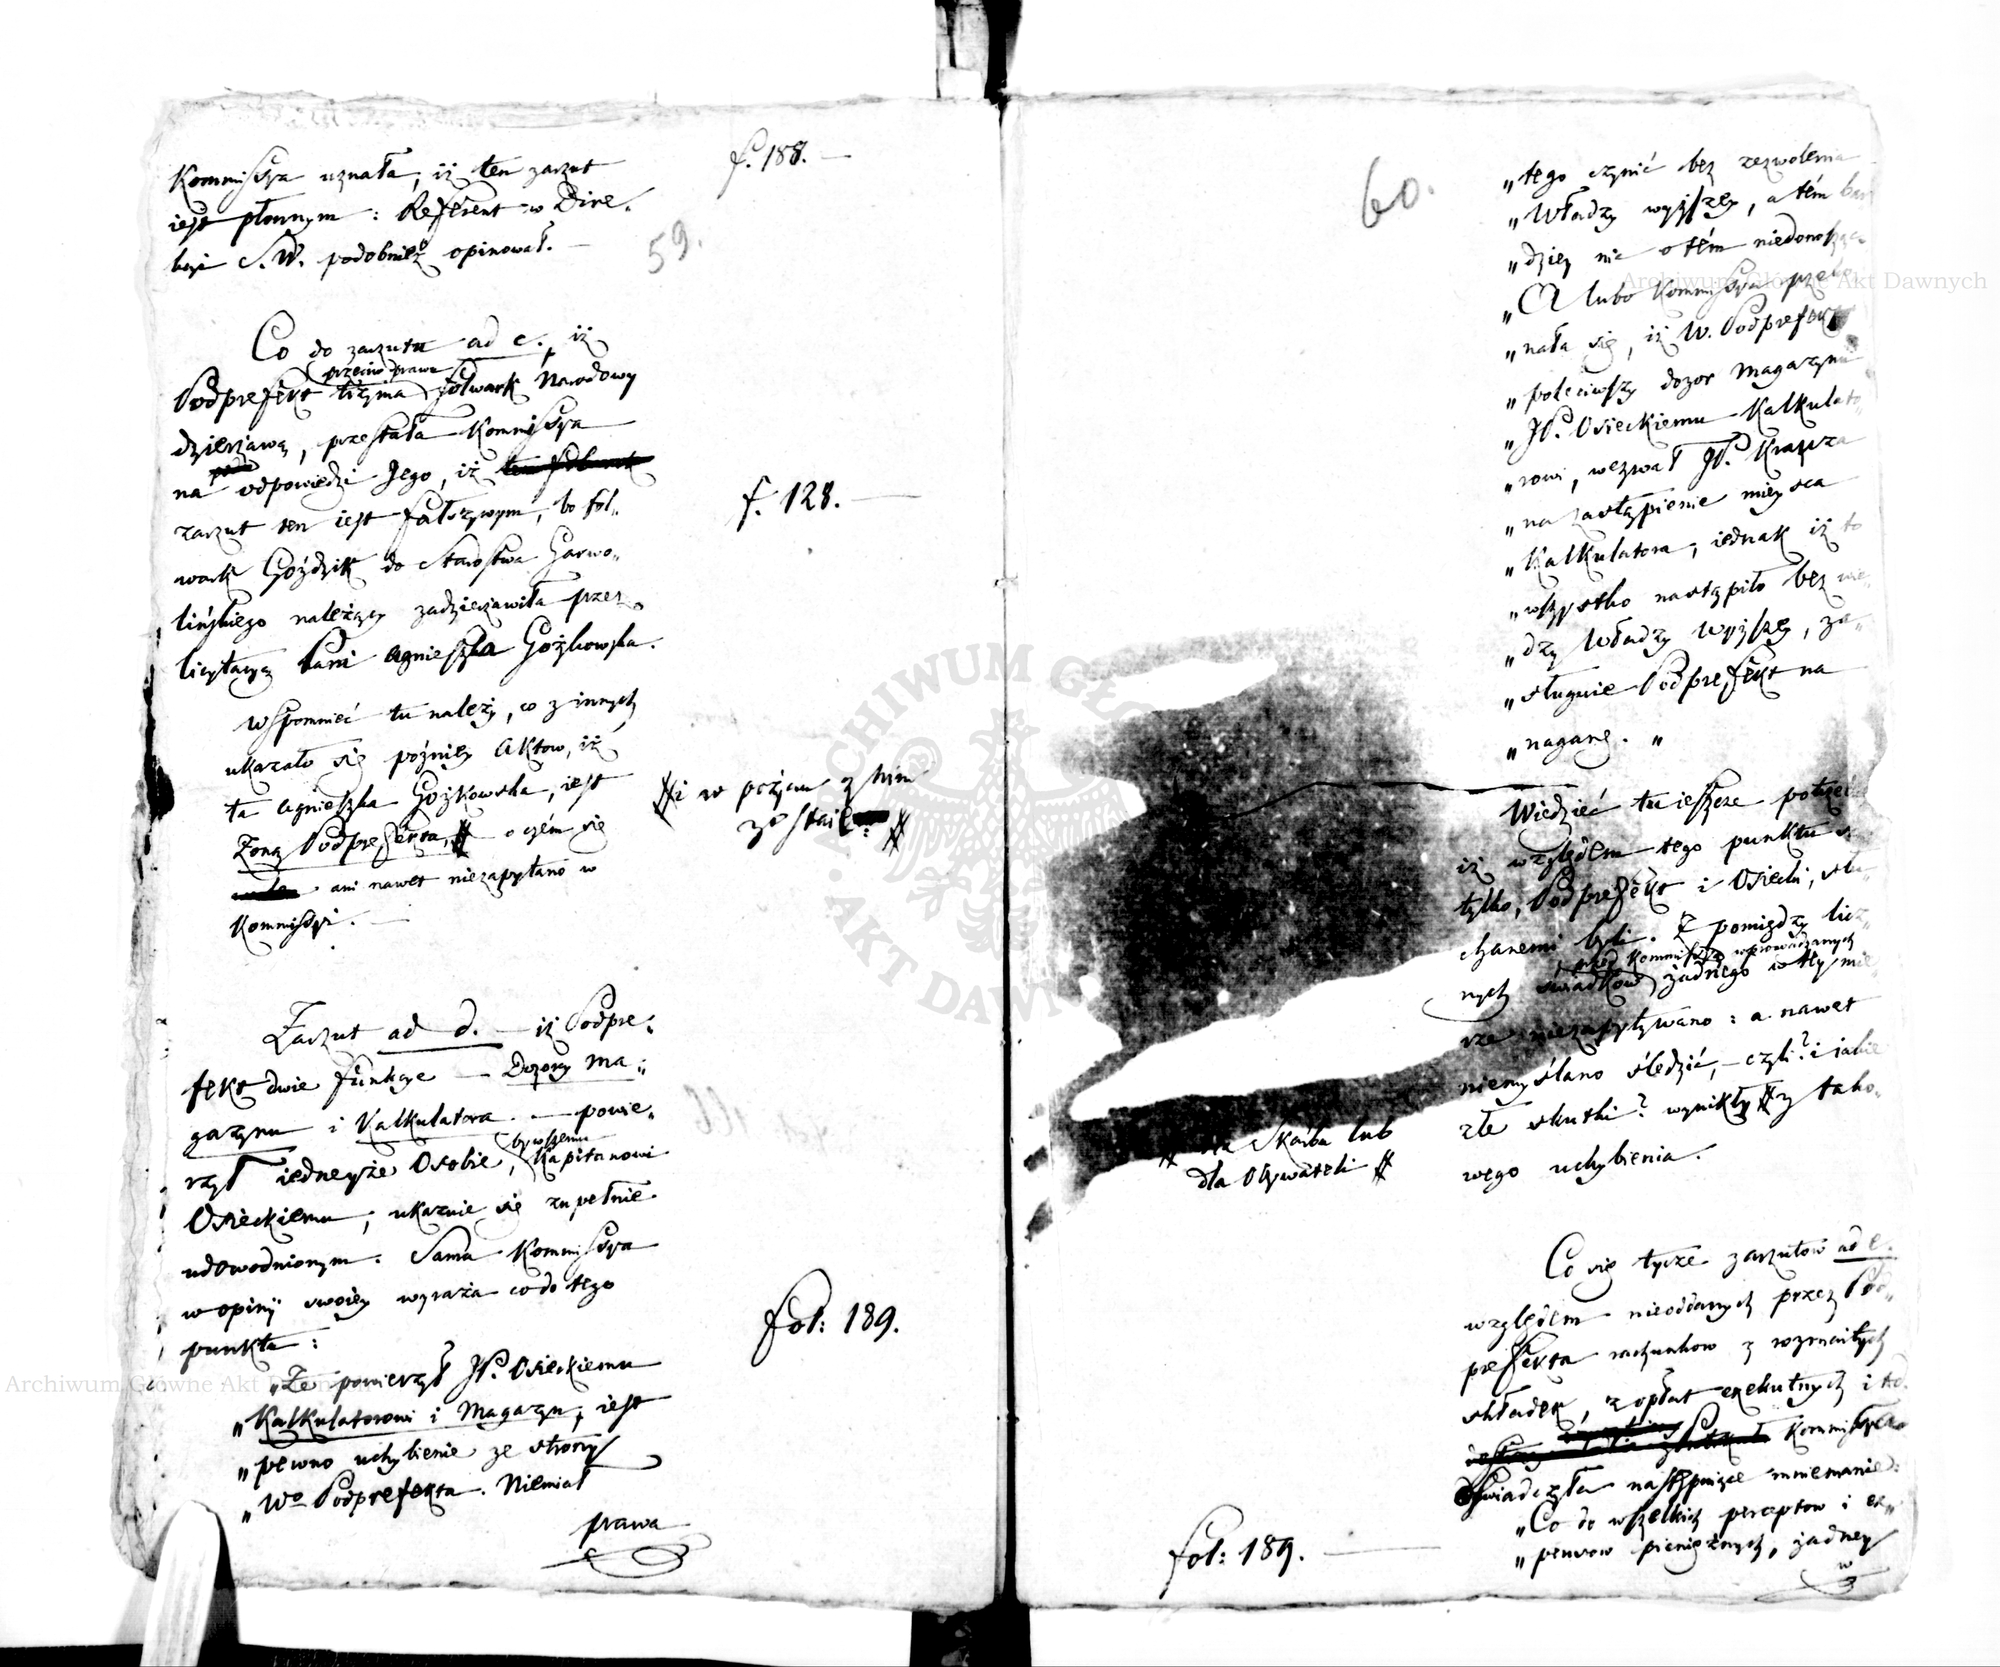 Kommissya uznała, iż ten zarzut
f. 188. —
iest płonnym : Referent w Dire-
kcyi S. W. podobnież opinował. —
59.
Co do zarzutu ad c., iż
przeciw prawu
Podprefekt trzyma folwark Narodowy
dzierżawą, przestała Kommissya
na odpowiedzi Jego, iż
f. 128. —
zarzut ten iest fałszywym, bo fol„
wark Goździk do Starostwa Garwo„
lińskiego należący zadzierżawiła przez
licytacyą Pani Agnieszka Gożkowska.
Wspomnieć tu należy, co z innych
ukazało się poźniey Aktow, iż
ta Agnieszka Gożkowska, iest
# i w pożyciu z Nim
Żoną Podprefekta, # o czém się
zostaie #
ani nawet niezapytano w
Kommissyi. —
Zarzut ad d. — iż Podpre„
fekt dwie funkcye — Dozoru ma„
gazynu i Kalkulatora — powie„
bywszemu
rzył iedneyże Osobie, Kapitanowi
Osieckiemu, ukazuie się zupełnie
udowodnionym. Sama Kommissya
w opinij swoiey wyraża co do tego
fol: 189.
punktu :
„Że powierzył JP. Osieckiemu
„Kalkulatorowi i Magazyn, iest
„pewno uchybienie ze strony
„Wo Podprefekta. Niemiał
prawa
60.
„tego czynić bez zezwolenia
„Władzy wyższey, a tém bar
„dziey nic o tém niedonosząc
„A lubo Kommissya przeko
„nała się, iż W. Podprefekt
„poleciwszy dozor Magazynu
„JP. Osieckiemu Kalkulato„
„rowi, wezwał JP. Krapza
„na zastąpienie mieysca
„Kalkulatora, iednak iż to
„wszystko nastąpiło bez wie„
„dzy Władzy wyższey, za„
„sługuie Podprefekt na
„naganę. „
Wiedzieć tu ieszcze potrzeba
iż względem tego punktu
tylko, Podprefekt i Osiecki, słu„
chanemi byli. Z pomiędzy licz„
przed Kommissyą wprowadzanych
nych świadków żadnego w tey mie
rze niezapytywano : a nawet
niemyślano śledzić, — czyli? i iakie
złe skutki? wynikły # z tako„
# dla Skarbu lub
dla Obywateli #
wego uchybienia.
Co się tycze zarzutow ad e.
względem nieoddanych przez Pod„
prefekta rachunkow z rozmaitych
składek, z opłat exekutnych i td.
Kommissya
oświadczyła następuiące mniemanie :
„Co do wszelkich perceptow i ex„
fol: 189. —
„pensow pieniężnych, żadney
w
Archiwum Główne Akt Dawnych
Archiwum Główne Akt Dawnych
ARCHIWUM GŁÓWNE AKT DAWNYCH